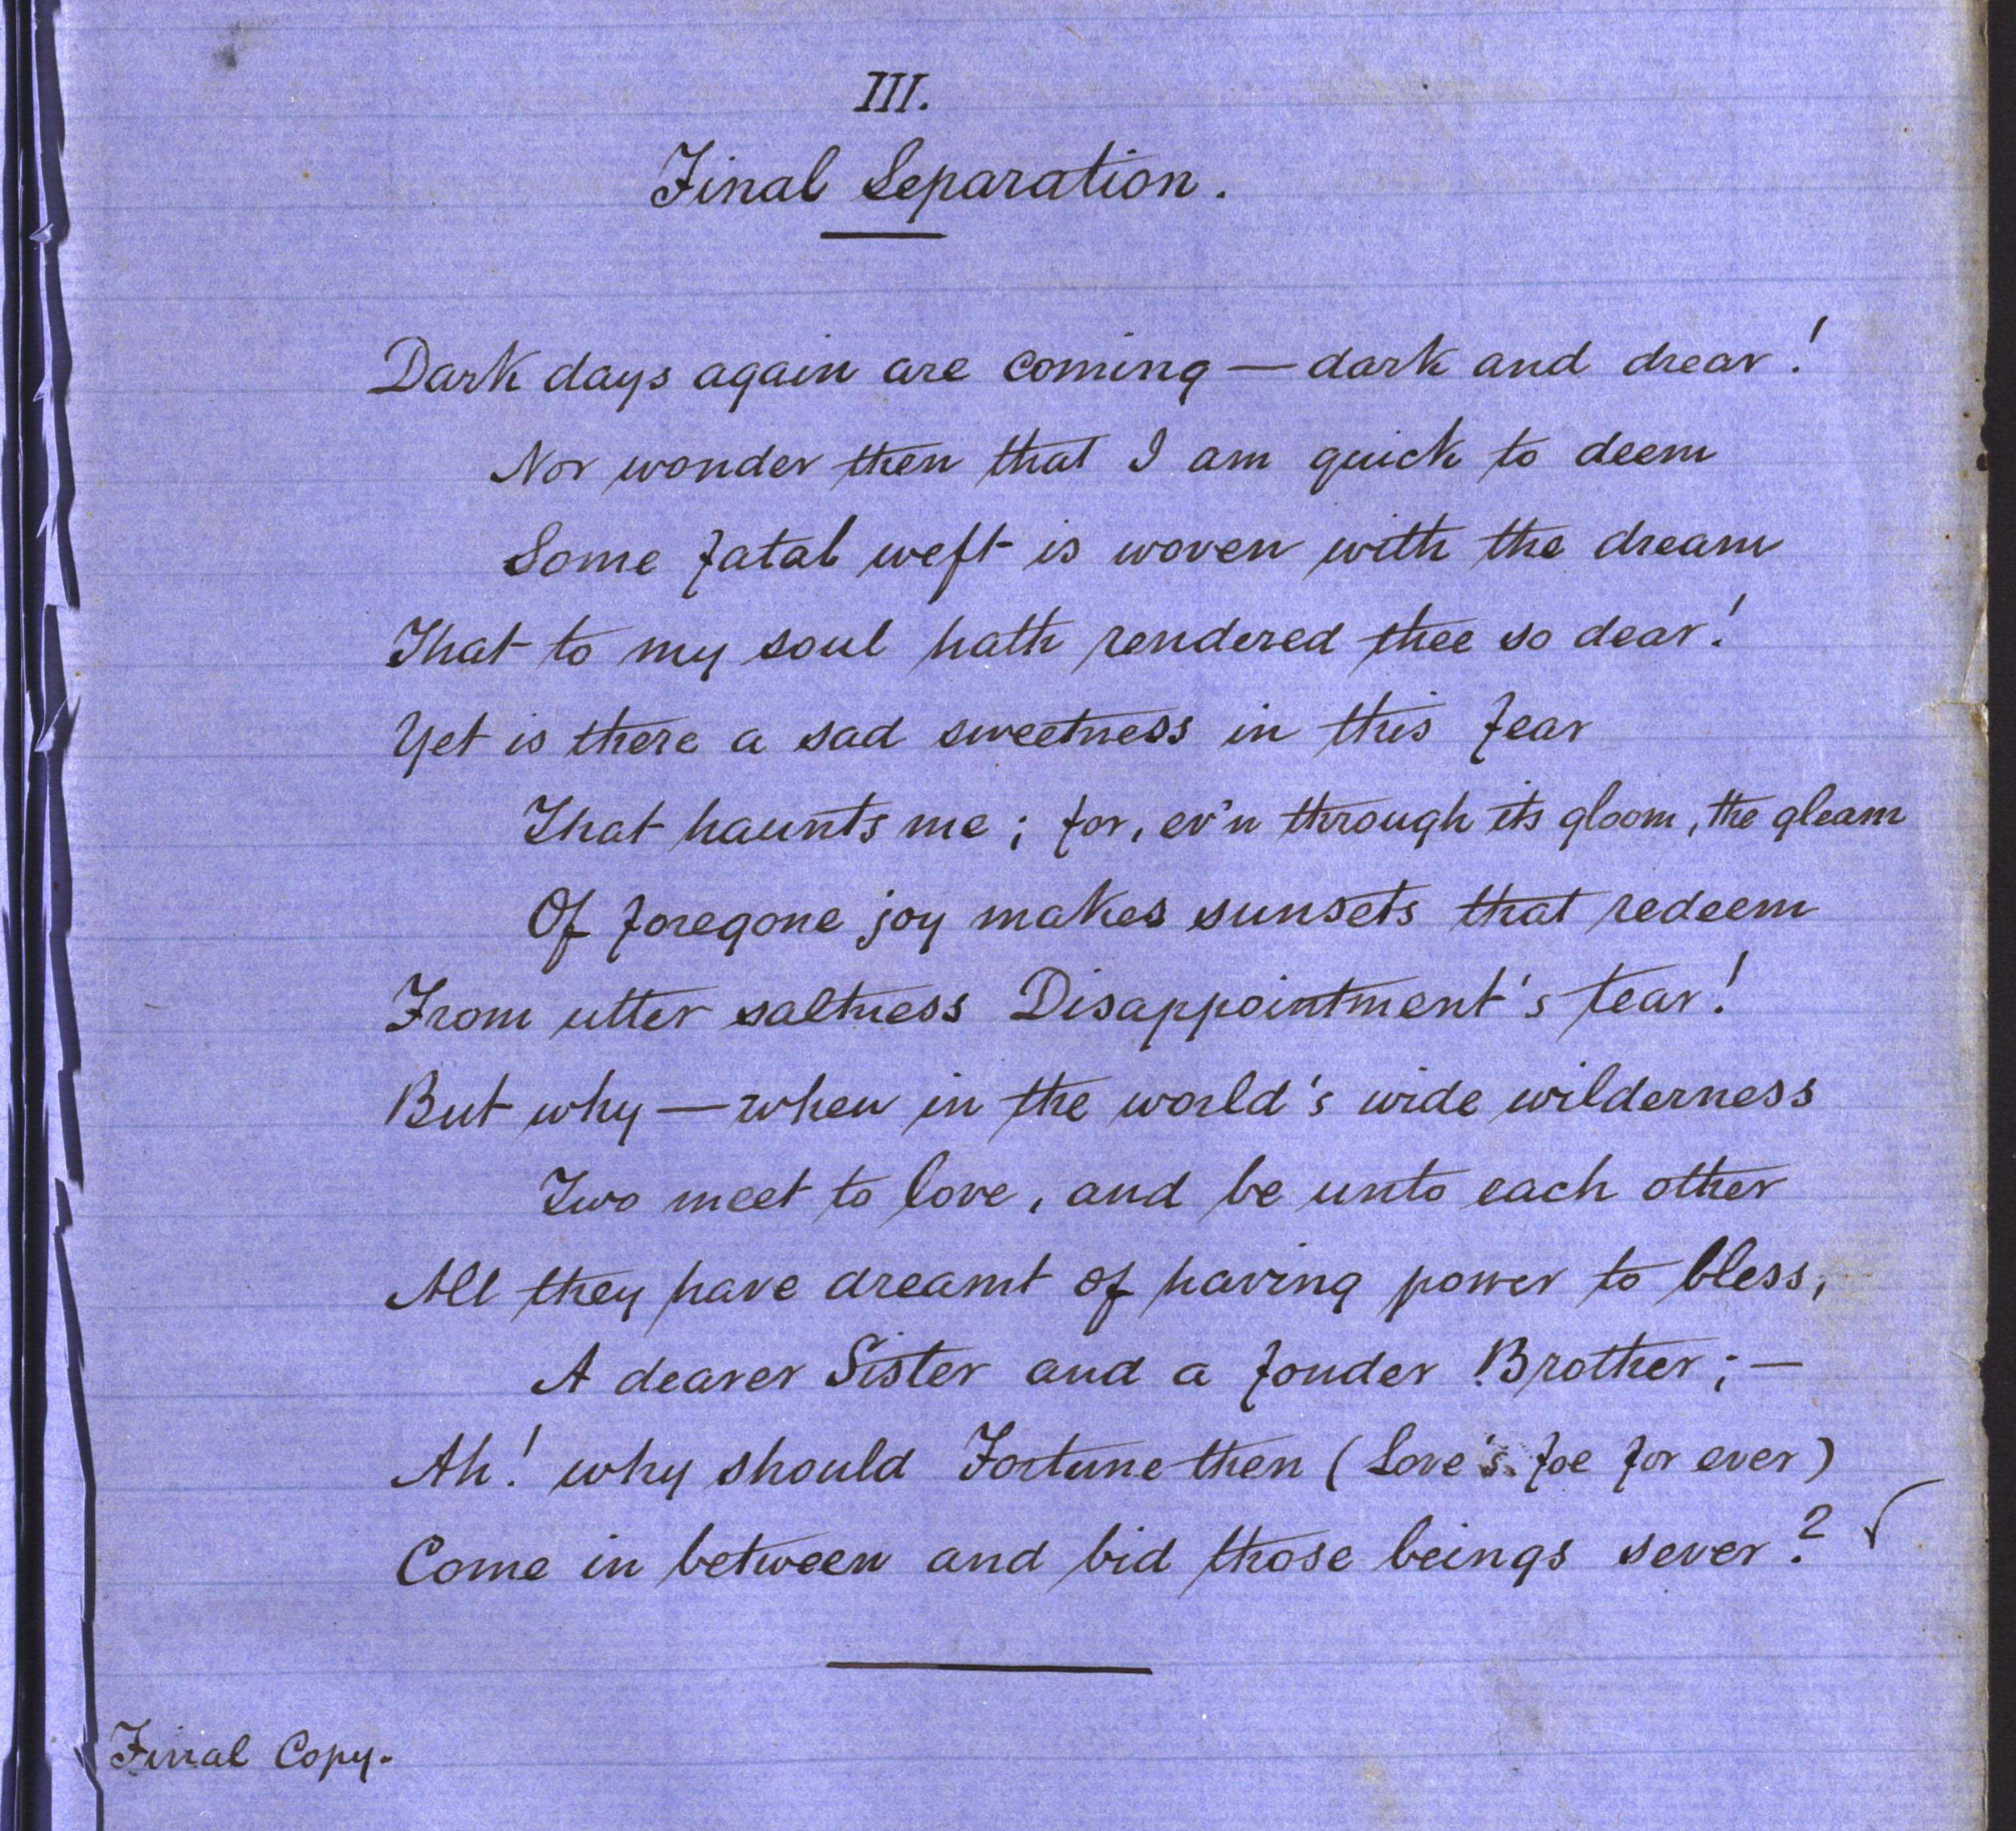 III.
Final Separation.
Dark days again are coming — dark and drear!
Nor wonder then that I am quick to deem
Some fatal weft is woven with the dream
That to my soul hath rendered thee so dear!
Yet is there a sad sweetness in this fear
That haunts me; for, ev'n through its gloom, the gleam
Of foregone joy makes sunsets that redeem
From utter saltness Disappointment's tear!
But why — when in the world's wide wilderness
Two meet to love, and be unto each other
All they have dreamt of having power to bless,
A dearer Sister and a fonder Brother; —
Ah! why should Fortune then (Love's foe for ever)
Come in between and bid those beings sever?
Final Copy.